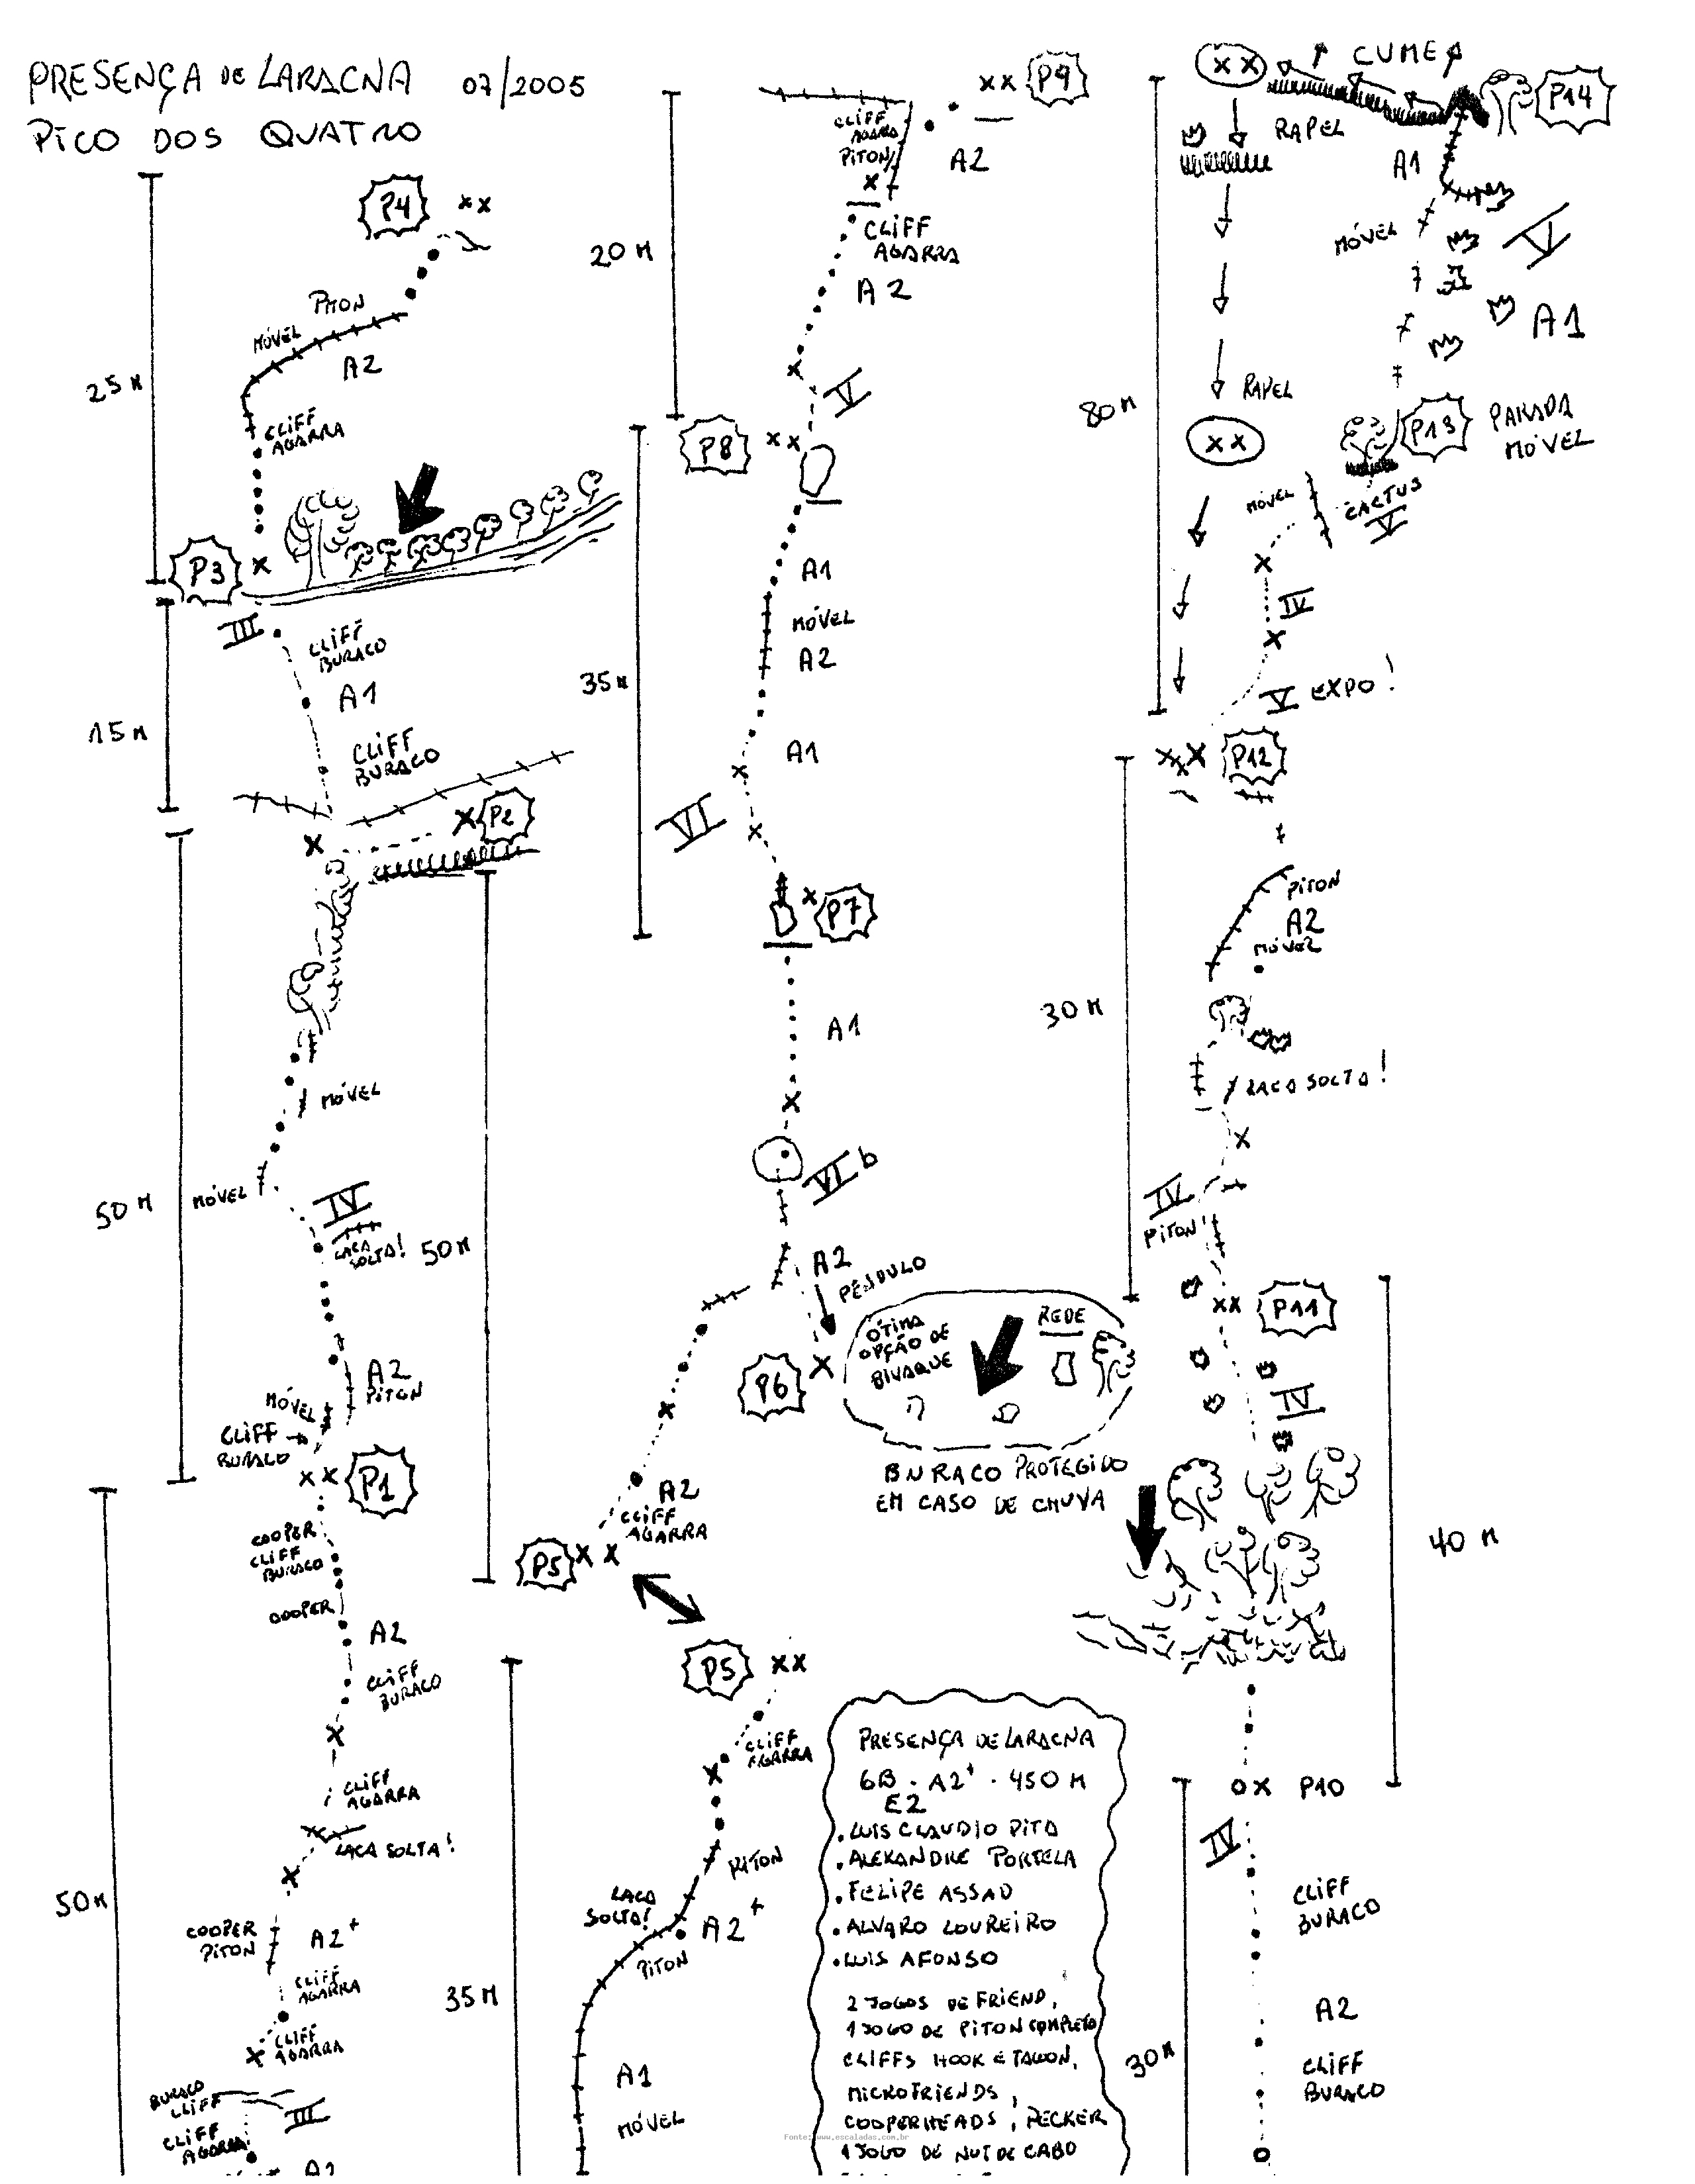 PRESENÇA DE LARACNA 07/2005
PICO DOS QUATRO
P4
PITON
MÓVEL
A2
25 M
CLIFF
AGARRA
P3
III
CLIFF
BURACO
A1
15 M
CLIFF
BURACO
P2
MÓVEL
MÓVEL
IV
LACA
SOLTA!
50 M
50 M
A2
PITON
MÓVEL
CLIFF
BURACO
P1
COOPER
CLIFF
BURACO
COOPER
A2
CLIFF
BURACO
CLIFF
AGARRA
LACA SOLTA!
50 M
COOPER
PITON
A2+
CLIFF
AGARRA
CLIFF
AGARRA
BURACO
CLIFF
III
CLIFF
AGARRA
A2
P9
CLIFF
AGARRA
PITON
A2
20 M
CLIFF
AGARRA
A2
V
P8
A1
MÓVEL
A2
35 M
A1
VI
P7
A1
VI b
A2
PÊNDULO
P6
ÓTIMA
OPÇÃO DE
BIVAQUE
REDE
BURACO PROTEGIDO
EM CASO DE CHUVA
A2
CLIFF
AGARRA
P5
P5
CLIFF
AGARRA
PITON
LACA
SOLTA!
A2+
PITON
35 M
A1
MÓVEL
PRESENÇA DE LARACNA
6B . A2+ . 450 M
E2
. LUIS CLAUDIO PITA
. ALEXANDRE PORTELA
. FELIPE ASSAD
. ALVARO LOUREIRO
. LUIS AFONSO
2 JOGOS DE FRIEND,
1 JOGO DE PITON COMPLETO
CLIFFS HOOK E TALON,
MICROFRIENDS,
COOPERHEADS, PECKER
1 JOGO DE NUT DE CABO
Fonte: www.escaladas.com.br
CUME
P14
RAPEL
A1
MÓVEL
V
A1
RAPEL
80 M
P13
PARADA
MÓVEL
MÓVEL
CACTUS
V
IV
V EXPO!
P12
PITON
A2
MÓVEL
30 M
LACA SOLTA!
IV
PITON
P11
IV
40 M
P10
IV
CLIFF
BURACO
A2
30 M
CLIFF
BURACO